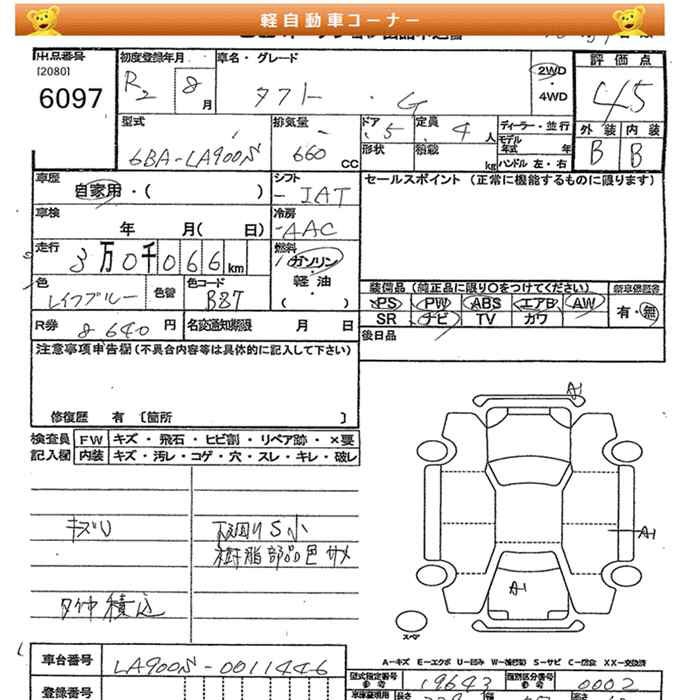 軽自動車コーナー
出品番号 初度登録年月 車名・グレード 評価点
[2080] 6097 R2 8月 タフト ・ G 2WD ・ 4WD 4.5
型式 排気量 ドア 定員 ディーラー・並行 外装 内装
6BA-LA900S 660 CC 5 4人 モデル年式 年 B B
形状 積載 kg ハンドル 左・右
車歴 シフト セールスポイント (正常に機能するものに限ります)
自家用・( ) IAT
車検 年 月( 日) 冷房 AAC
走行 3万0千066km 燃料 ガソリン・軽油・( )
色 色替 色コード 装備品 (純正品に限り○をつけてください) 新車保証書
レイクブルー B87 PS PW ABS エアB AW 有・無
R券 8640円 名変通知期限 月 日 SR ナビ TV カワ
後日品
注意事項申告欄 (不具合内容等は具体的に記入して下さい)
修復歴 有 〔箇所 〕
A1
検査員 FW キズ・飛石・ヒビ割・リペア跡・×要
記入欄 内装 キズ・汚レ・コゲ・穴・スレ・キレ・破レ
キズU 下廻りS小
樹脂部品色サメ
A1
A1
タイヤ積込
スペア
A-キズ E-エクボ U-凹み W-補修跡 S-サビ C-腐食 XX-交換済
車台番号 LA900S-0011446 型式指定番号 19643 類別区分番号 0002
登録番号 長さ 幅